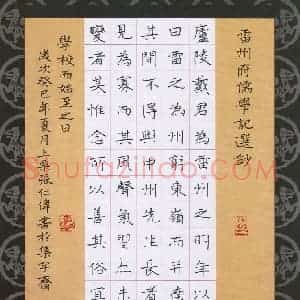 雷州府儒學記選鈔
廬陵戴君為雷州之明年以
曰雷之為州窮嶺而
其間不得與中州先生長
見為寡而其風聲氣習未
變者某惟念所以善其俗宜
學校而始至之日
歲次癸巳年夏月張仁偉書於集字齋
Shufazidian.com